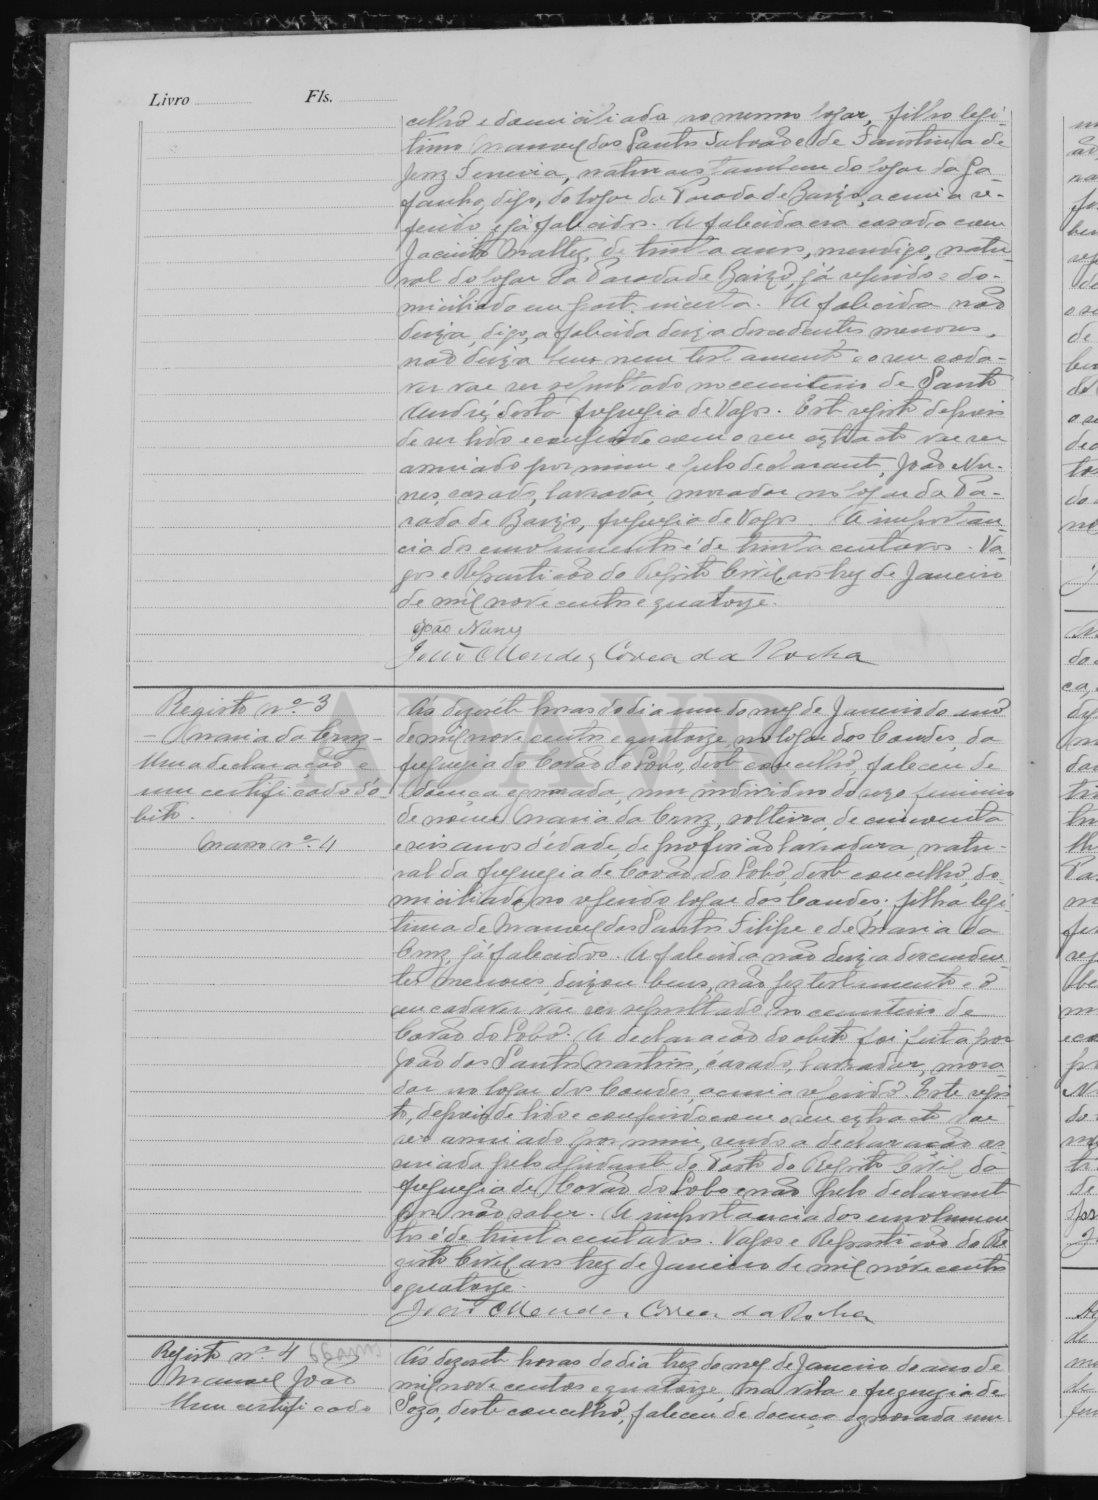 Livro Fls.
celho e domiciliada no mesmo logar, filha legi-
tima Manuel dos Santos Salvador e de Faustina de
Jesus Ferreira, naturaes tambem do logar da Ga-
fanha, digo, do logar da Parada de Baixo, acima re-
ferido, e já falecidos. A falecida era casada com
Jacinto Maltez, de trinta anos, mendigo, natu-
ral do logar da Parada de Baixo, já referido e do-
miciliado em parte incerta. A falecida não
deixa, digo, a falecida deixa descendentes menores,
não deixa bens nem testamento e o seu cada-
ver vae ser sepultado no cemiterio de Santo
André, desta freguezia de Vagos. Este registo depois
de ser lido e conferido com o seu extracto vae ser
assinado por mim e pelo declarante, João Nu-
nes, casado, lavrador, morador no logar da Pa-
rada de Baixo, freguezia de Vagos. A importan-
cia dos emolumentos é de trinta centavos. Va-
gos e Repartição do Registo Civil, aos trez de Janeiro
de mil novecentos e quatorze.
João Nunes
João Mendes Corrêa da Rocha
ADAVR
Registo nº 3
- Maria da Cruz -
Uma declaração e
um certificado d'o-
bito.
Maço nº 4
Ás dezesete horas do dia um do mez de Janeiro do ano
de mil novecentos e quatorze, no logar dos Candes, da
freguezia de Covão do Lobo, deste concelho, faleceu de
doença ignorada, um individuo do sexo feminino
de nome Maria da Cruz, solteira, de cincoenta
e seis anos d'edade, de profissão lavradora, natu-
ral da freguezia de Covão do Lobo, deste concelho, do-
miciliada no referido logar dos Candes; filha legi-
tima de Manuel dos Santos Filipe e de Maria da
Cruz, já falecidos. A falecida não deixa descenden-
tes menores, deixou bens, não fez testamento e o
seu cadaver vae ser sepultado no cemiterio de
Covão do Lobo. A declaração do obito foi feita por
João dos Santos Martins, casado, lavrador, mora-
dor no logar dos Candes, acima referido. Este regis-
to, depois de lido e conferido com o seu extracto vae
ser assinado por mim, sendo a declaração as-
sinada pelo ajudante do Posto do Registo Civil da
freguezia de Covão do Lobo e não pelo declarante
por não saber. A importancia dos emolumen-
tos é de trinta centavos. Vagos e Repartição do Re-
gisto Civil, aos trez de Janeiro de mil novecentos
e quatorze.
João Mendes Corrêa da Rocha
Registo nº 4 66 anos
Manuel João
Um certificado
Ás dezesete horas do dia trez do mez de Janeiro do ano de
mil novecentos e quatorze, na vila e freguezia de
Soza, deste concelho, faleceu de doença ignorada um